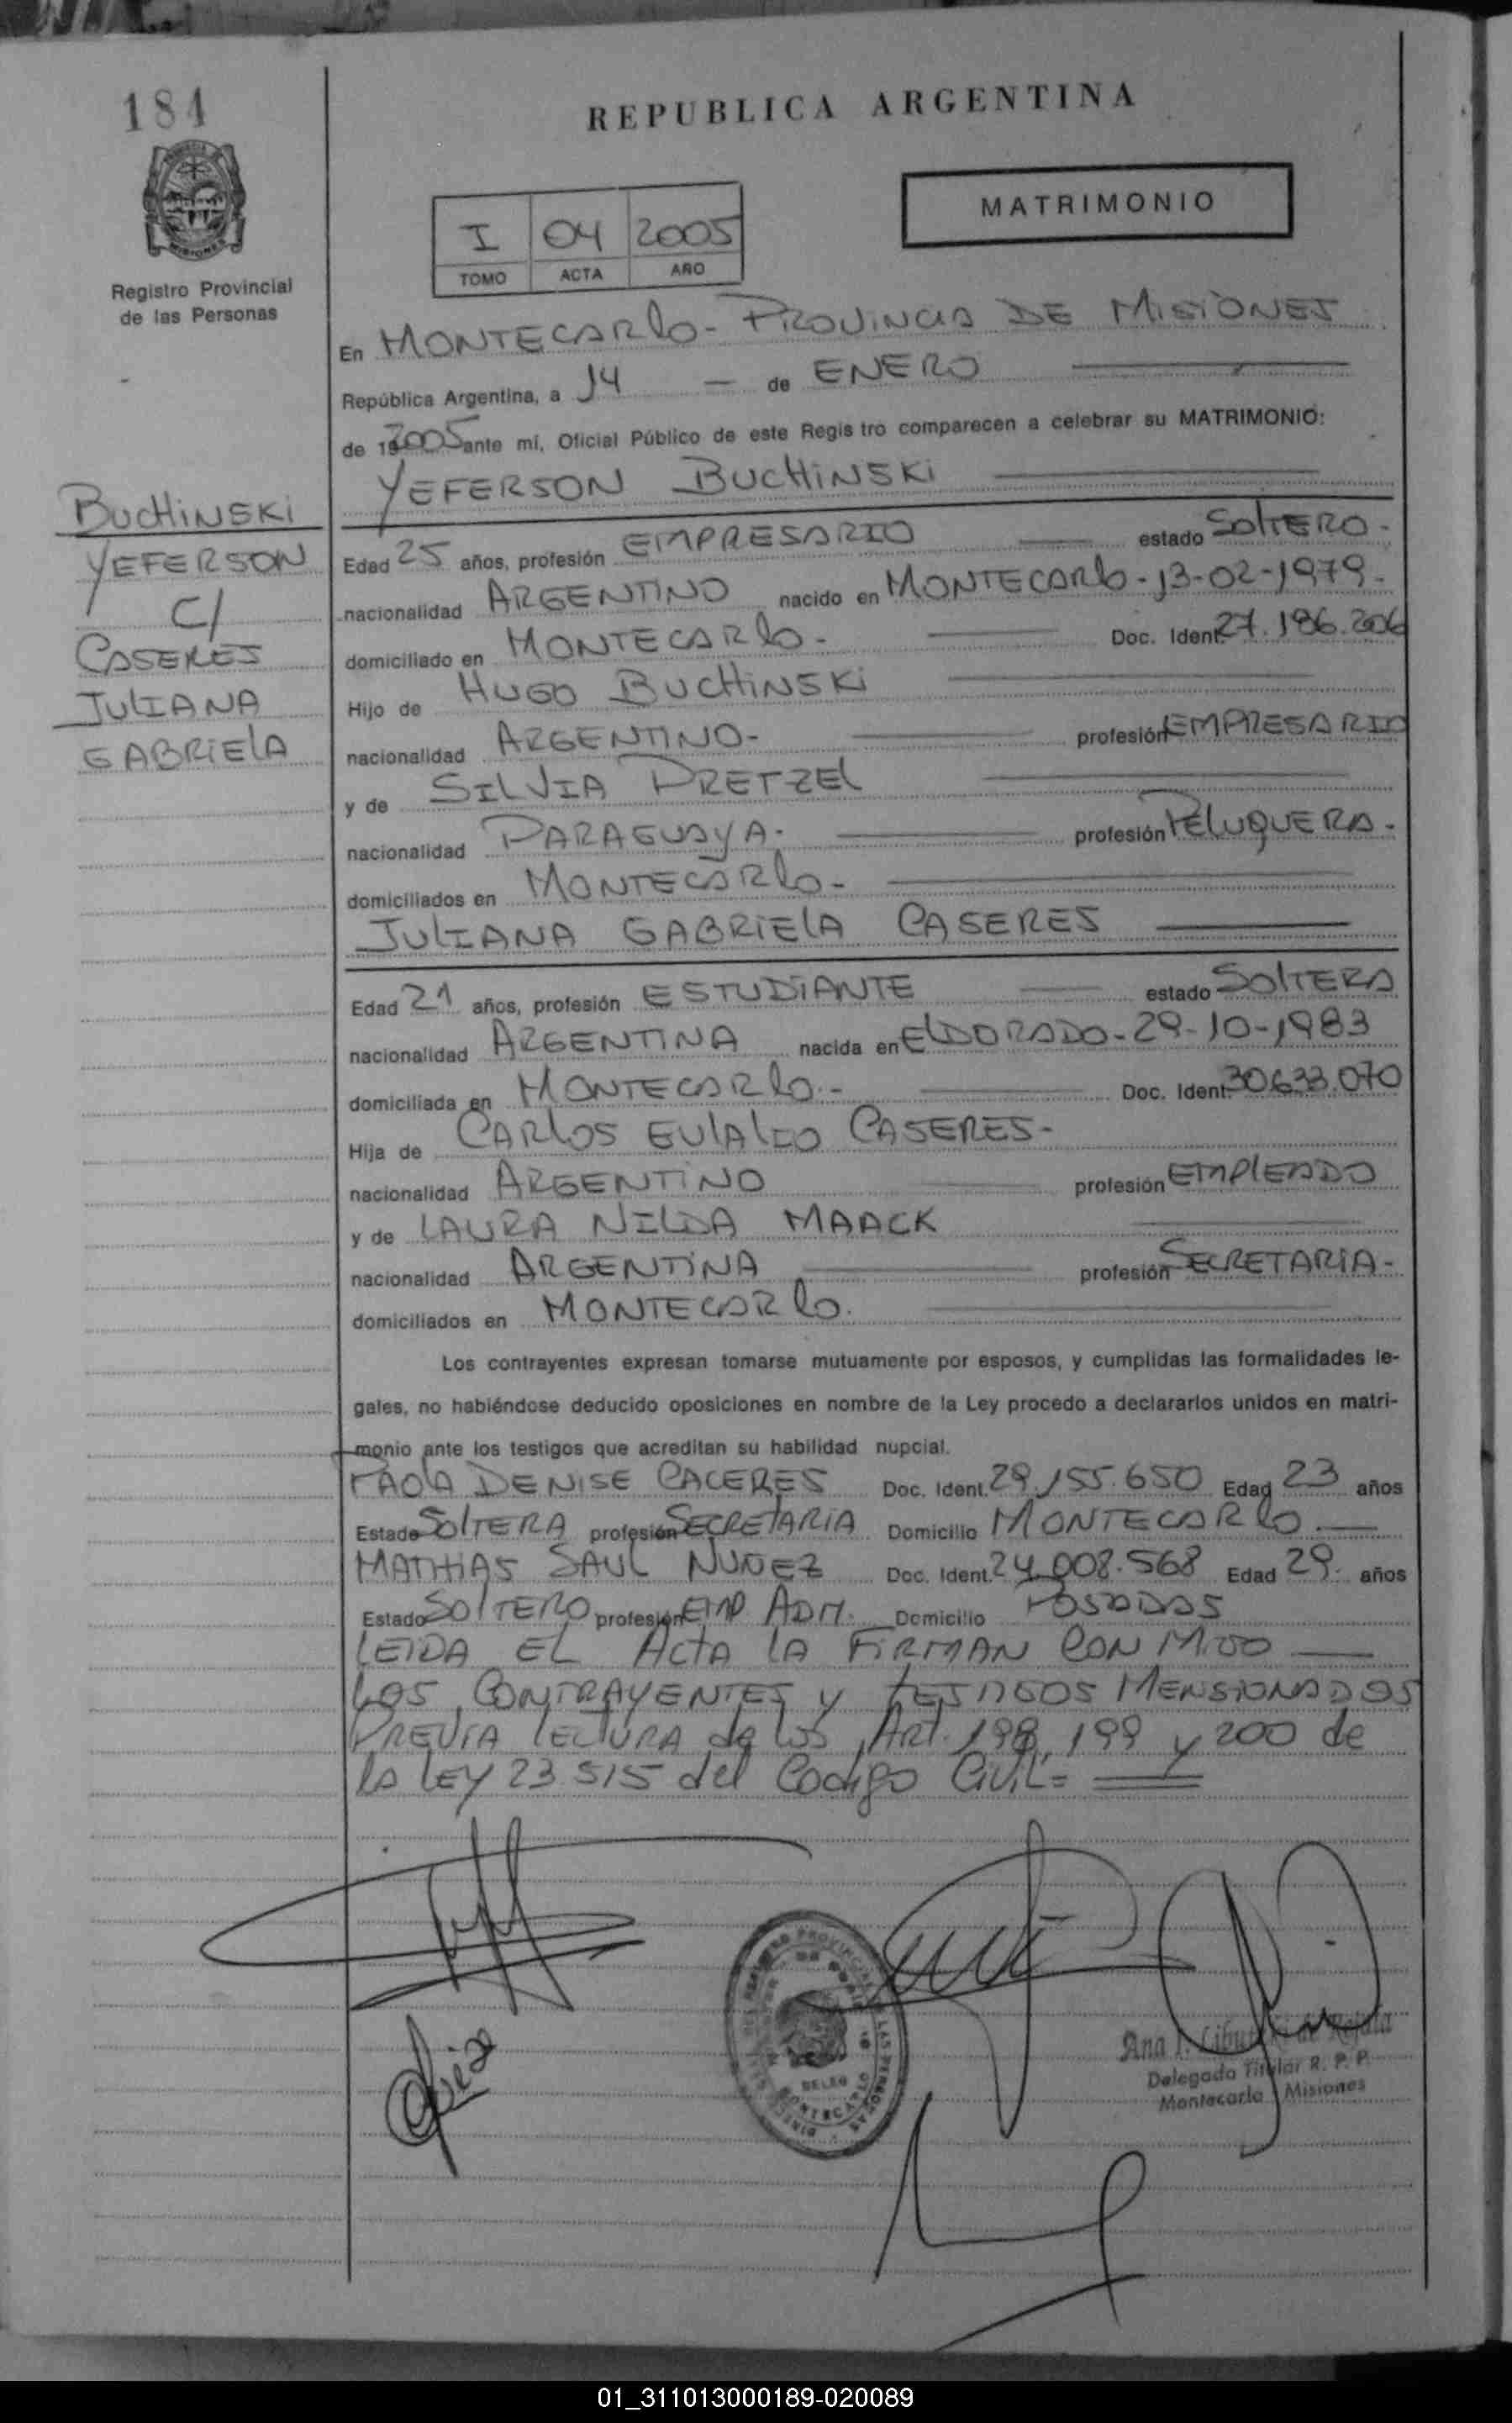 184
REPUBLICA ARGENTINA
MATRIMONIO
I 04 2005
TOMO ACTA AÑO
Registro Provincial
de las Personas
En MONTECARlo - PROVINCIA DE MISIONES
República Argentina, a 14 — de ENERO
de 192005 ante mí, Oficial Público de este Regis tro comparecen a celebrar su MATRIMONIO:
YEFERSON BUCHINSKI
BUCHINSKI
YEFERSON
C/
CASERES
JULIANA
GABRIELA
Edad 25 años, profesión EMPRESARIO estado SOLTERO -
nacionalidad ARGENTINO nacido en MONTECARlo - 13-02-1979-
domiciliado en MONTECARlo - Doc. Ident. 27.186.206
Hijo de HUGO BUCHINSKI
nacionalidad ARGENTINO- profesión EMPRESARIO
y de SILVIA PRETZEL
nacionalidad PARAGUAYA- profesión PELUQUERA-
domiciliados en MONTECARlo-
JULIANA GABRIELA CASERES
Edad 21 años, profesión ESTUDIANTE estado SOLTERA
nacionalidad ARGENTINA nacida en ELDORADO-29-10-1983
domiciliada en MONTECARlo.- Doc. Ident. 30.633.070
Hija de CARLOS EULALIO CASERES-
nacionalidad ARGENTINO profesión EMPLEADO
y de LAURA NILDA MAACK
nacionalidad ARGENTINA profesión SECRETARIA-
domiciliados en MONTECARlo.
Los contrayentes expresan tomarse mutuamente por esposos, y cumplidas las formalidades le-
gales, no habiéndose deducido oposiciones en nombre de la Ley procedo a declararlos unidos en matri-
monio ante los testigos que acreditan su habilidad nupcial.
PAOLA DENISE CACERES Doc. Ident. 29.155.650 Edad 23 años
Estado SOLTERA profesión SECRETARIA Domicilio MONTECARlo.
MATHIAS SAUL NUÑEZ Doc. Ident. 24.008.568 Edad 29. años
Estado SOLTERO profesión EMP ADM. Domicilio POSADAS
LEIDA EL ACTA LA FIRMAN CON MIGO
LOS CONTRAYENTES y TESTIGOS MENSIONADOS
PREVIA LECTURA de los Art. 198, 199 y 200 de
la LEY 23.515 del Codigo Civil=
Ana
Delegada Titular R. P. P.
Montecarlo Misiones
01_311013000189-020089